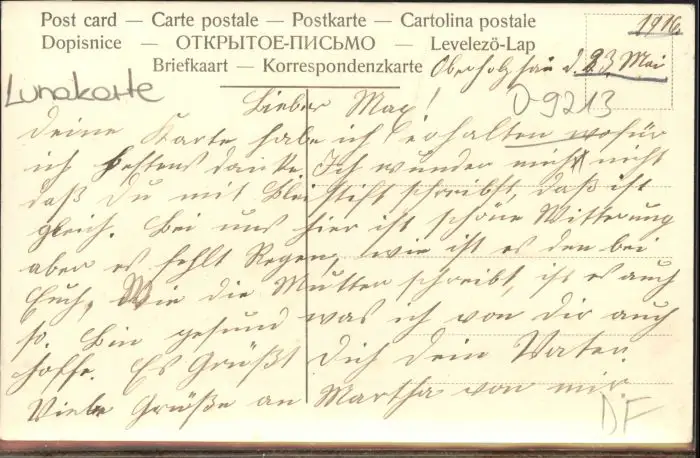 Post card — Carte postale — Postkarte — Cartolina postale
Dopisnice — ОТКРЫТОЕ-ПИСЬМО — Levelező-Lap
Briefkaart — Korrespondenzkarte
1916
Oberholzhain d. 23. Mai
Lunakarte
D-9213
Lieber Max!
Deine Karte habe ich erhalten wofür
ich bestens danke. Ich wunder mich nicht
daß Du mit Bleistift schreibst, daß ist
gleich. Bei uns hier ist schöne Witterung
aber es fehlt Regen, wie ist es den bei
Euch, Wie die Mutter schreibt, ist es auch
so. Bin gesund was ich von Dir auch
hoffe. Es Grüßt Dich dein Vater.
Viele Grüße an Martha von mir.
DF